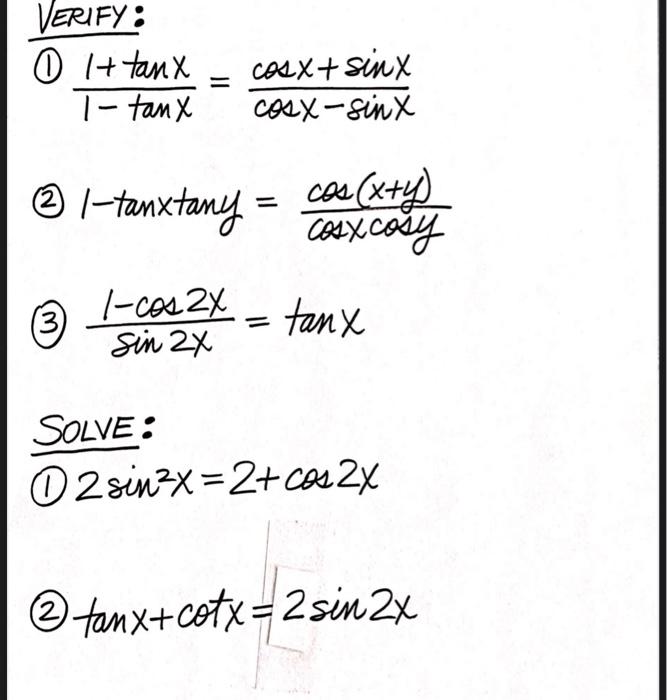 VERIFY:
① (1 + tan x)/(1 - tan x) = (cos x + sin x)/(cos x - sin x)
② 1 - tan x tan y = cos(x+y)/(cos x cos y)
③ (1 - cos 2x)/(sin 2x) = tan x
SOLVE:
① 2 sin²x = 2 + cos 2x
② tan x + cot x = 2 sin 2x